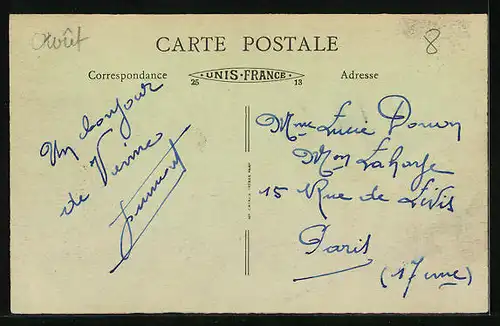 Août
8
CARTE POSTALE
Correspondance
UNIS-FRANCE
25
13
Adresse
Un bonjour
de
Mme Lucie
Mon Laharpe
15 Rue de Lévis
Paris
(17 eme)